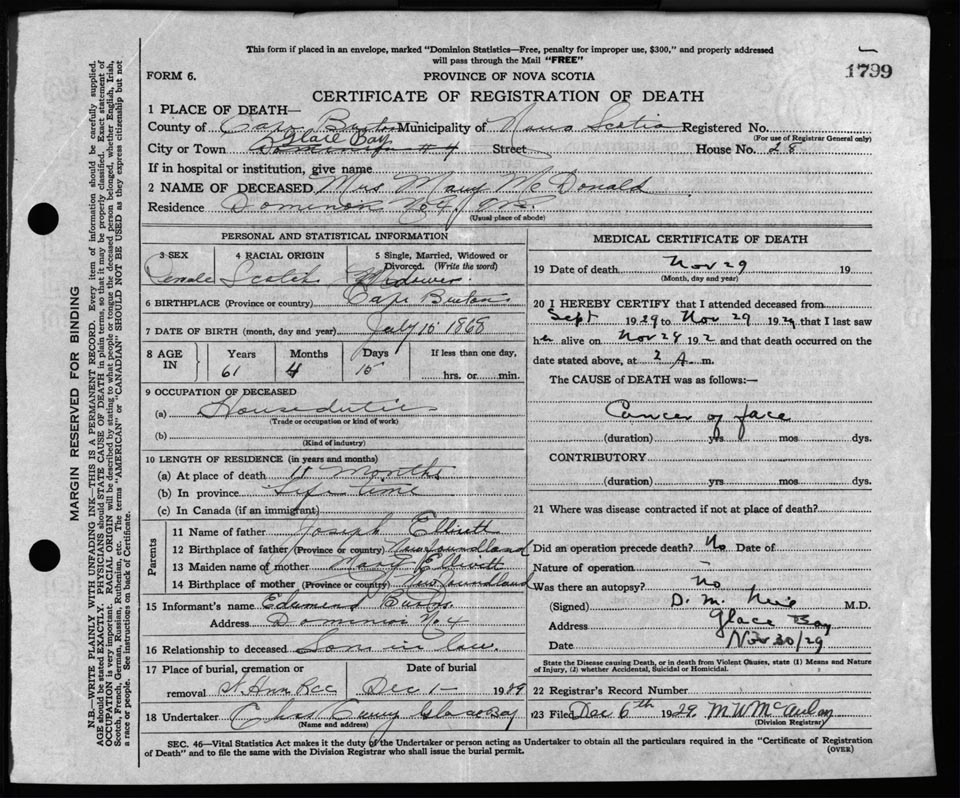 This form if placed in an envelope, marked "Dominion Statistics—Free, penalty for improper use, $300," and properly addressed
will pass through the Mail "FREE"
1799
FORM 6.
PROVINCE OF NOVA SCOTIA
CERTIFICATE OF REGISTRATION OF DEATH
1 PLACE OF DEATH—
County of Cape Breton Municipality of Nova Scotia Registered No.
(For use of Registrar General only)
Glace Bay
City or Town Dominion #4 Street House No. 28
If in hospital or institution, give name
2 NAME OF DECEASED Mrs Mary McDonald
Residence Dominion No 4,
(Usual place of abode)
PERSONAL AND STATISTICAL INFORMATION
3 SEX 4 RACIAL ORIGIN 5 Single, Married, Widowed or Divorced. (Write the word)
Female Scotch
6 BIRTHPLACE (Province or country) Cape Breton
7 DATE OF BIRTH (month, day and year) July 15 1868
8 AGE IN Years Months Days If less than one day,
61 4 15 hrs. or min.
9 OCCUPATION OF DECEASED
(a) House duties
(Trade or occupation or kind of work)
(b)
(Kind of industry)
10 LENGTH OF RESIDENCE (in years and months)
(a) At place of death Months
(b) In province Life time
(c) In Canada (if an immigrant)
Parents
11 Name of father Joseph Elliott
12 Birthplace of father (Province or country) Newfoundland
13 Maiden name of mother Mary Elliott
14 Birthplace of mother (Province or Country) Newfoundland
15 Informant's name Edmund
Address Dominion No 4
16 Relationship to deceased Son in law
17 Place of burial, cremation or removal Date of burial
St. Ann Dec 1- 1929
18 Undertaker Glace Bay
(Name and address)
MEDICAL CERTIFICATE OF DEATH
19 Date of death Nov 29 19
(Month, day and year)
20 I HEREBY CERTIFY that I attended deceased from
Sept 1929 to Nov 29 1929 that I last saw
her alive on Nov 28 192 and that death occurred on the
date stated above, at 2 A. m.
The CAUSE of DEATH was as follows:—
Cancer of face
(duration) yrs mos dys.
CONTRIBUTORY
(duration) yrs. mos. dys.
21 Where was disease contracted if not at place of death?
Did an operation precede death? No Date of
Nature of operation
Was there an autopsy? No
(Signed) D. M. M.D.
Address Glace Bay
Date Nov 30/29
State the Disease causing Death, or in death from Violent Causes, state (1) Means and Nature
of Injury, (2) whether Accidental, Suicidal or Homicidal.
22 Registrar's Record Number
23 Filed Dec 6th 1929. M W McAulay
(Division Registrar)
SEC. 46—Vital Statistics Act makes it the duty of the Undertaker or person acting as Undertaker to obtain all the particulars required in the "Certificate of Registration
of Death" and to file the same with the Division Registrar who shall issue the burial permit.
(OVER)
MARGIN RESERVED FOR BINDING
N.B.—WRITE PLAINLY WITH UNFADING INK—THIS IS A PERMANENT RECORD. Every item of information should be carefully supplied.
AGE should be stated EXACTLY. PHYSICIANS should STATE CAUSE OF DEATH in plain terms, so that it may be properly classified. Exact statement of
OCCUPATION is very important. RACIAL ORIGIN will be described by stating to what people or tongue the deceased person belonged, whether English, Irish,
Scotch, French, German, Russian, Ruthenian, etc. The terms "AMERICAN" or "CANADIAN" SHOULD NOT BE USED as they express citizenship but not
a race or people. See instructions on back of Certificate.